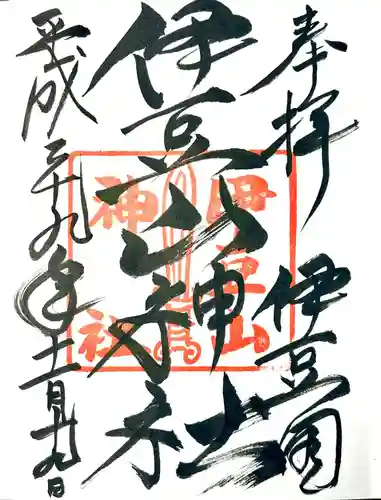 奉拝
伊豆国
伊豆山神社
伊豆山
神社
平成二十九年十二月廿九日